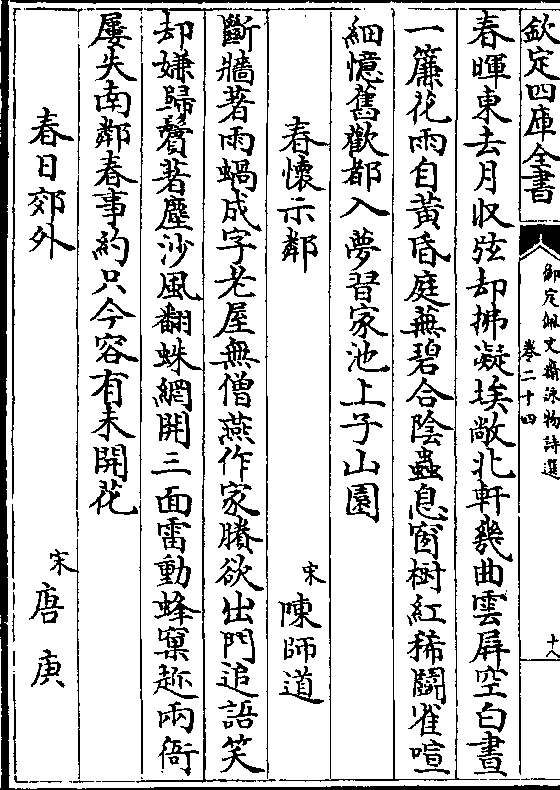 欽定四庫全書
御定佩文齋詠物詩選
卷二十四
十八
春暉東去月收弦却拂凝埃敞北軒幾曲雲屏空白晝
一簾花雨自黄昏庭蕪碧合陰蟲息窗樹紅稀鬬雀喧
細憶舊歡都入夢習家池上子山園
春懷示鄰
宋
陳師道
斷牆著雨蝸成字老屋無僧燕作家賸欲出門追語笑
却嫌歸鬢著塵沙風翻蛛網開三面雷動蜂窠趂兩衙
屢失南鄰春事約只今容有未開花
春日郊外
宋
唐庚